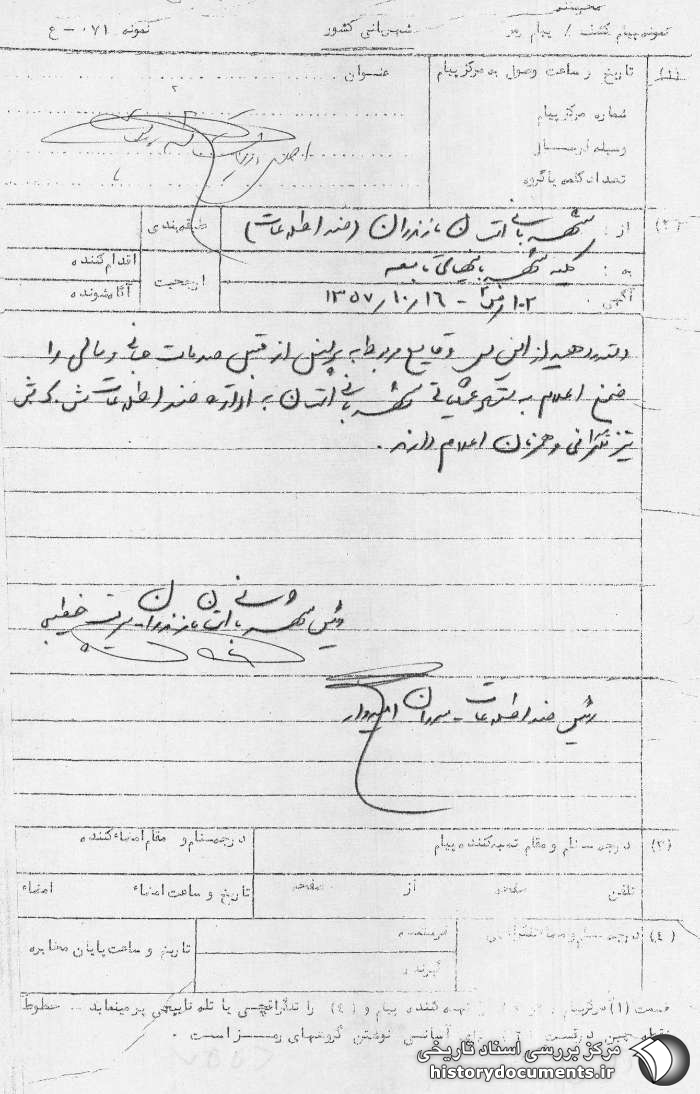 محرمانه
نمونه پیام کشف / پیام رمز شهربانی کشور نمونه ۰۷۱ - ع
(۱) تاریخ و ساعت وصول به مرکز پیام عنوان
شماره مرکز پیام
وسیله ارسال
تعداد کلمه یا گروه
(۲) از : شهربانی استان مازندران (ضد اطلاعات) طبقه‌بندی
به : کلیه شهربانیهای تابعه ارجحیت اقدام کننده
آگهی . ۱۳۵۷/۱۰/۱۶ - آگاه شونده
دستور دهید از این پس وقایع مربوط به پرسنل از قبیل صدمات جانی و مالی را
ضمن اعلام به ستاد عملیاتی شهربانی استان به اداره ضد اطلاعات ش.ک.ش
نیز تلگرافی و همزمان اعلام دارند.
رئیس شهربانی استان مازندران - سرتیپ
رئیس ضد اطلاعات - سروان امیدوار
(۳) درجه - نام و مقام تهیه کننده پیام درجه - نام و مقام امضاء کننده
تلفن صفحه از صفحه تاریخ و ساعت امضاء امضاء
(۴) درجه - نام و فرستنده تاریخ و ساعت پایان مخابره
گیرنده
قسمت (۱) تهیه کننده پیام و (۴) را تلگرافچی یا تله تایپچی پر مینماید .. خطوط
نقطه چین در قسمت آسانی نوشتن گروههای رمز است .
مرکز بررسی اسناد تاریخی
historydocuments.ir